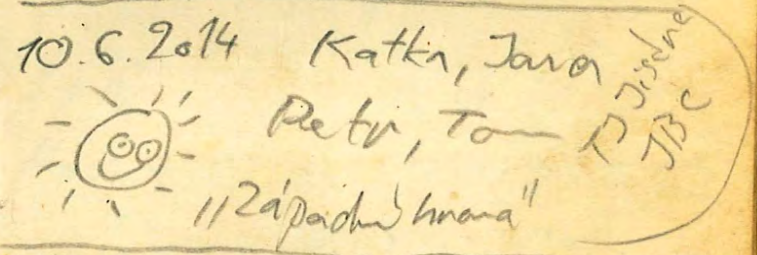 10.6.2014 Katka, Jana
Petr, Tom
„Západní hrana"
TJ
JBC